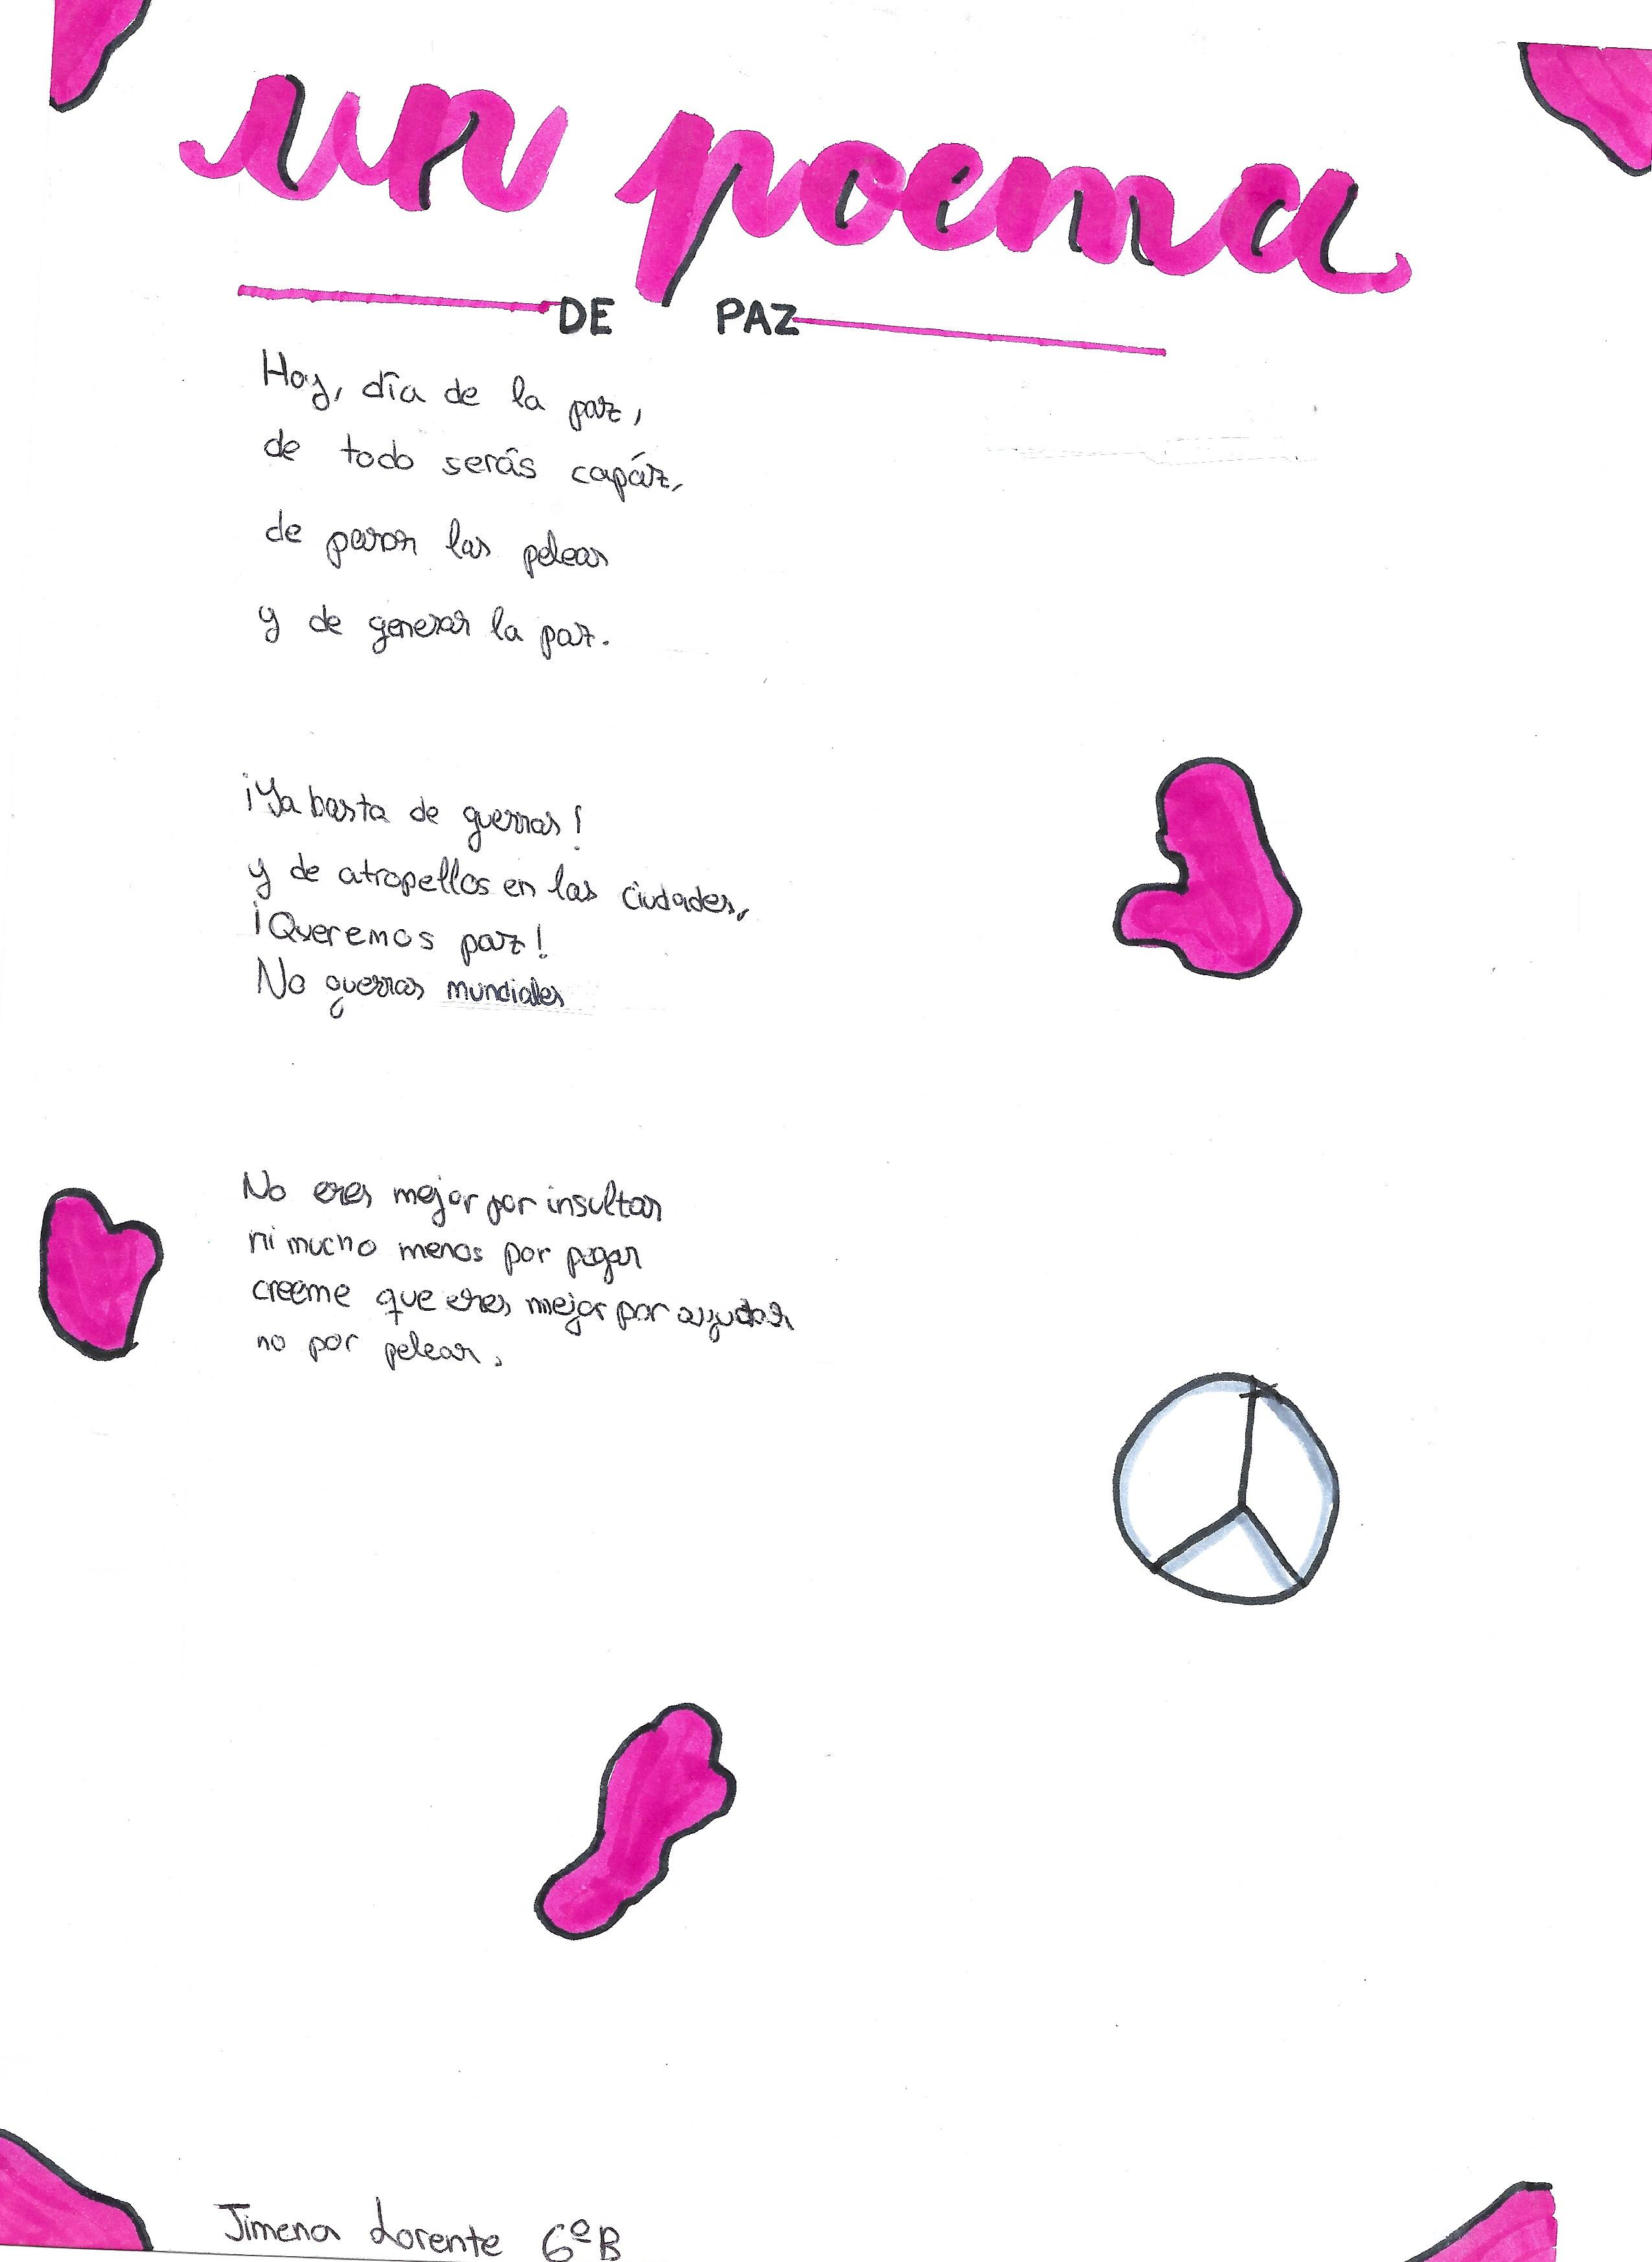 un poema
DE PAZ
Hoy, día de la paz,
de todo serás capáz,
de parar las peleas
y de generar la paz.
¡Ya basta de guerras!
y de atropellos en las ciudades,
¡Queremos paz!
No guerras mundiales
No eres mejor por insultar
ni mucho menos por pegar
creeme que eres mejor por ayudar
no por pelear.
Jimena Lorente 6ºB